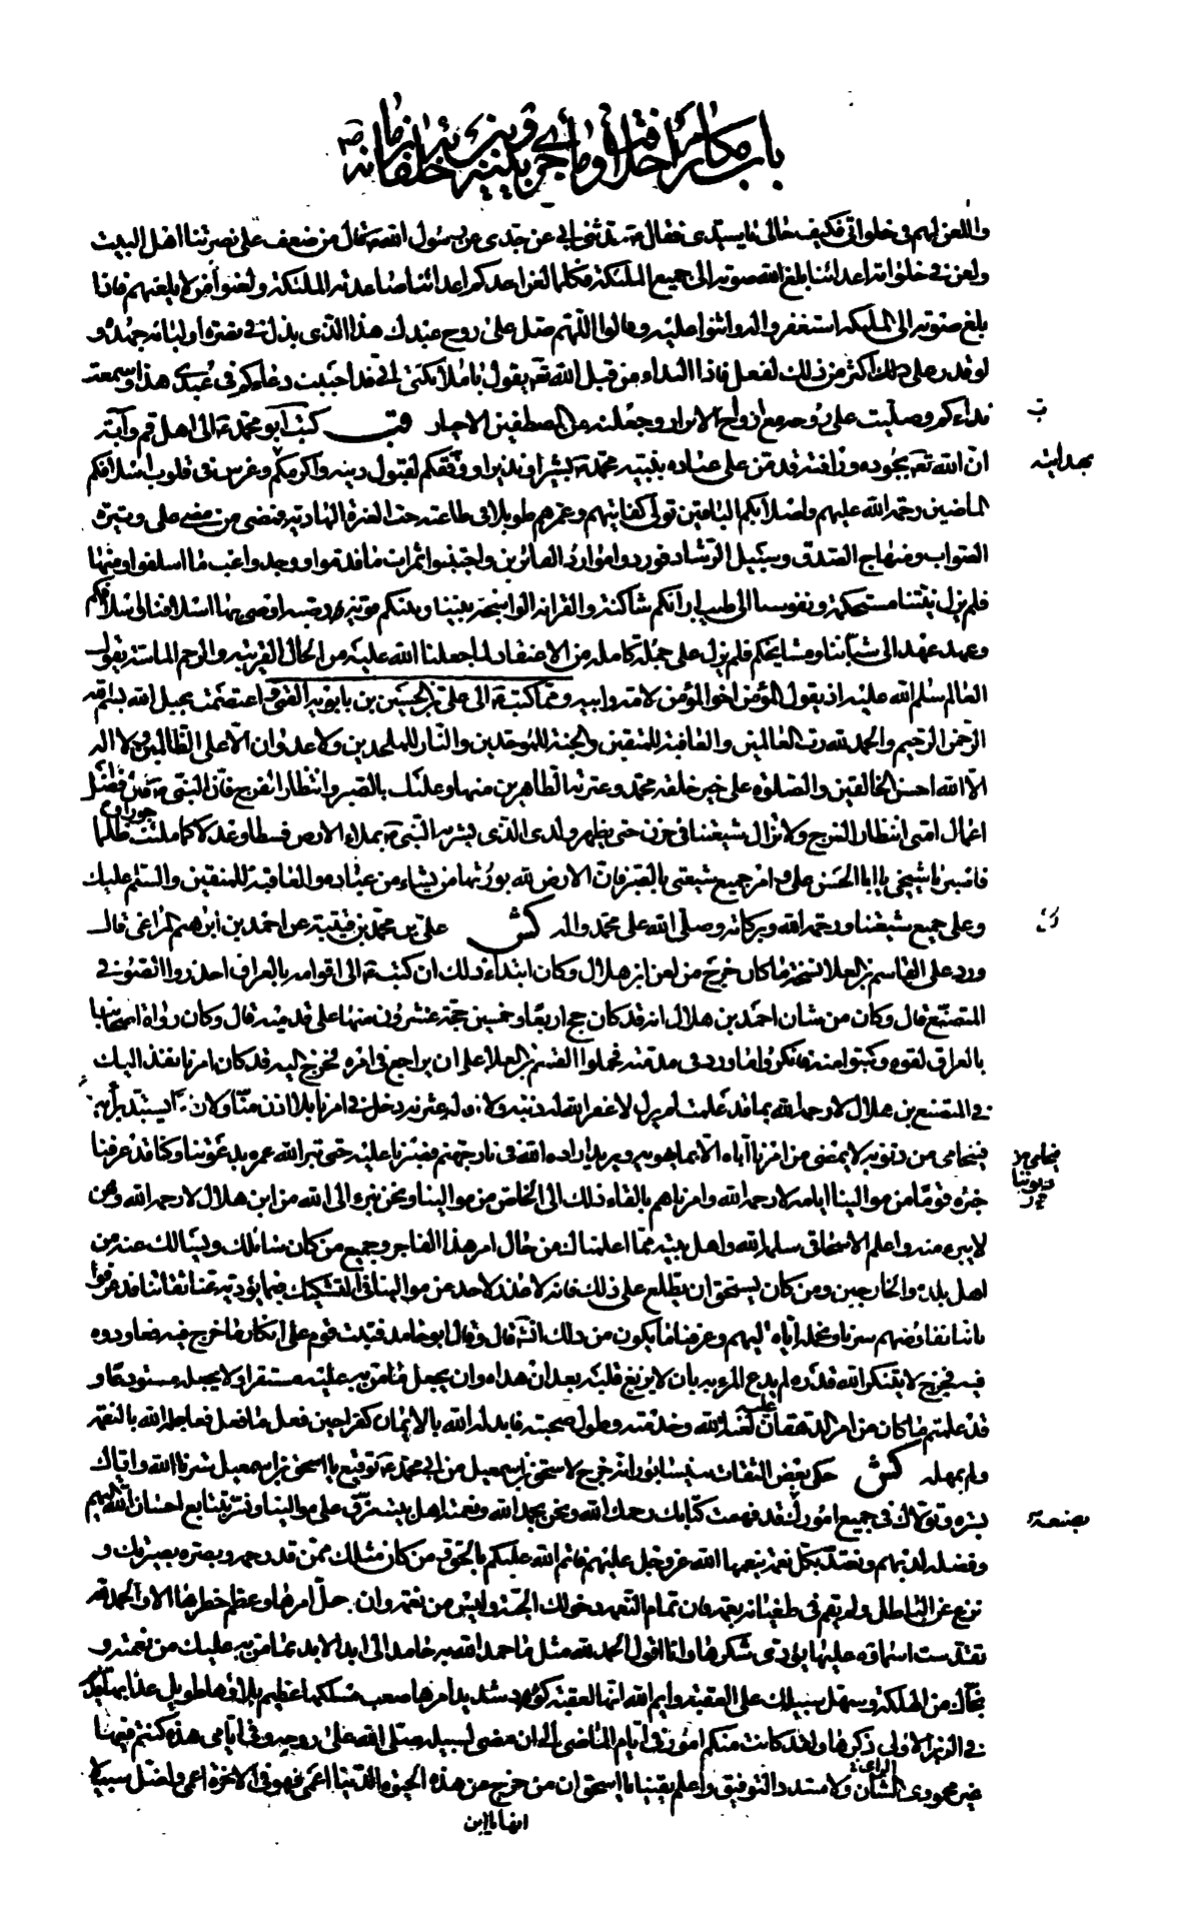 باب مكارم أخلاقه وما جرى بينه وبين خلفاء زمانه
واللعن لهم في خلواتي فكيف حالي يا سيدي فقال ع حدثني أبي عن جدي عن رسول الله ص قال من ضعف على نصرتنا أهل البيت
ولعن في خلواته أعداءنا بلغ الله صوته إلى جميع الملئكة فكلما لعن أحدكم أعداءنا صاعدته الملئكة ولعنوا من لا يلعنهم فإذا
بلغ صوته إلى الملئكة استغفروا له وأثنوا عليه وقالوا اللهم صل على روح عبدك هذا الذي بذل في نصرة أوليائه جهده و
لو قدر على ذلك أكثر من ذلك لفعل فإذا النداء من قبل الله تعه يقول يا ملائكتي إني قد أجبت دعاءكم في عبدي هذا وسمعت
نداءكم وصليت على روحه مع أرواح الأبرار وجعلته من المصطفين الأخيار قب كتب أبو محمد ع إلى أهل قم وآبة
ب
إن الله تعه بجوده ورأفته قد من على عباده بنبيه محمد ص بشيرا ونذيرا ووفقكم لقبول دينه وأكرمكم وغرس في قلوب أسلافكم
بهدايته
الماضين رحمة الله عليهم وأصلابكم الباقين تولى كفايتهم وعمرهم طويلا في طاعته حب العترة الهادية فمضى من مضى على وتيرة
الصواب ومنهاج الصدق وسبيل الرشاد فوردوا موارد الفائزين واجتنبوا ثمرات ما قدموا ووجدوا غب ما أسلفوا ومنها
فلم يزل نيتنا مستحكمة ونفوسنا إلى طيب آرائكم ساكنة والقرابة الواشجة بيننا وبينكم قوية وصية أوصي بها أسلافنا إلى أسلافكم
وعهد عهد إلى شباننا ومشايخكم فلم يزل على جملة كاملة من الاعتقاد لما جعلنا الله عليه من الحال القريبة والرحم الماسة يقول
العالم سلام الله عليه إذ يقول المؤمن أخو المؤمن لأمه وأبيه ومما كتب ع إلى علي بن الحسين بن بابويه القمي اعتصمت بحبل الله بسم الله
الرحمن الرحيم والحمد لله رب العالمين والعاقبة للمتقين والجنة للموحدين والنار للملحدين ولا عدوان إلا على الظالمين ولا إله
إلا الله أحسن الخالقين والصلوة على خير خلقه محمد وعترته الطاهرين منها وعليك بالصبر وانتظار الفرج فإن النبي ص قال أفضل
أعمال أمتي انتظار الفرج ولا تزال شيعتنا في حزن حتى يظهر ولدي الذي بشر به النبي ص يملاء الأرض قسطا وعدلا كما ملئت جورا وظلما
فاصبر يا شيخي يا أبا الحسن علي وأمر جميع شيعتي بالصبر فإن الأرض لله يورثها من يشاء من عباده والعاقبة للمتقين والسلم عليك
وعلى جميع شيعتنا ورحمة الله وبركاته وصلى الله على محمد وآله كش علي بن محمد بن قتيبة عن أحمد بن إبراهيم المراغي قال
ورد على القاسم بن العلا نسخة ما كان خرج من لعن ابن هلال وكان ابتداء ذلك أن كتب ع إلى قوامه بالعراق احذروا الصوفي
المتصنع قال وكان من شأن أحمد بن هلال أنه قد كان حج أربعا وخمسين حجة عشرون منها على قدميه قال وكان رواة أصحابنا
بالعراق لقوه وكتبوا منه فأنكروا ما ورد في مذمته فحملوا القسم بن العلا على أن يراجع في أمره فخرج إليه قد كان أمرنا نفذ إليك
في المتصنع بن هلال لا رحمه الله بما قد علمت لم يزل لا غفر الله له ذنبه ولا أقاله عثرته دخل في أمرنا بلا إذن منا ولا رضى يستبد برأيه
فيتحامى من ذنوبه لا يمضي من أمرنا إياه إلا بما يهويه ويريد أراده الله في نار جهنم فصبرنا عليه حتى تبر الله عمره بدعوتنا وكنا قد عرفنا
خبره قوما من موالينا أيامه لا رحمه الله وأمرناهم بإلقاء ذلك إلى الخاص من موالينا ونحن نبرء إلى الله من ابن هلال لا رحمه الله وممن
لا يبرء منه وأعلم الإسحاقي سلمه الله وأهل بيته مما أعلمناك من حال أمر هذا الفاجر وجميع من كان سألك ويسألك عنه من
أهل بلده والخارجين ومن كان يستحق أن يطلع على ذلك فإنه لا عذر لأحد من موالينا في التشكيك فيما يؤديه عنا ثقاتنا قد عرفوا
بأننا نفاوضهم سرنا ونحمله إياه إليهم وعرفنا ما يكون من ذلك انشه قال وقال أبو حامد فثبت قوم على إنكار ما خرج فيه فعاودوه
فيه فخرج لا يشكر الله قدره لم يدع المرء ربه بأن لا يزيغ قلبه بعد أن هداه وأن يجعل ما من به عليه مستقرا ولا يجعله مستودعا و
قد علمتم ما كان من أمر الدهقان عليه لعنة الله وخدمته وطول صحبته فأبدله الله بالإيمان كفرا حين فعل ما فعل فعاجله الله بالنقمة
ولم يمهله كش حكى بعض الثقات بنيسابور أنه خرج لإسحق بن إسمعيل من أبي محمد ع توقيع يا إسحق بن إسمعيل سترنا الله وإياك
بستره وتولاك في جميع أمورك بصنعه قد فهمت كتابك رحمك الله ونحن بحمد الله ونعمته أهل بيت نرق على موالينا ونسر بتتابع إحسان الله إليهم
وفضله لديهم ونعتد بكل نعمة ينعمها الله عز وجل عليهم فأتم الله عليكم بالحق ومن كان مثلك ممن قد رحمه وبصره بصيرتك و
نزع عن الباطل ولم يقم في طغيانه بعمه فإن تمام النعمة دخولك الجنة وليس من نعمة وإن جل أمرها وعظم خطرها إلا والحمد لله
تقدست أسماؤه عليها يؤدي شكرها وأنا أقول الحمد لله مثل ما حمد الله به حامد إلى أبد الأبد بما من به عليك من نعمة و
نجاك من الهلكة وسهل سبيلك على العقبة وأيم الله إنها لعقبة كؤد شديد أمرها صعب مسلكها عظيم بلاؤها طويل عذابها قديم
في الزبر الأولى ذكرها ولقد كانت منكم أمور في أيام الماضي إلى أن مضى لسبيله صلى الله على روحه وفي أيامي هذه كنتم فيها
غير محمودي الشأن ولا مسددي التوفيق واعلم يقينا يا إسحق أن من خرج من هذه الحيوة الدنيا أعمى فهو في الآخرة أعمى وأضل سبيلا
إنها يا ابن